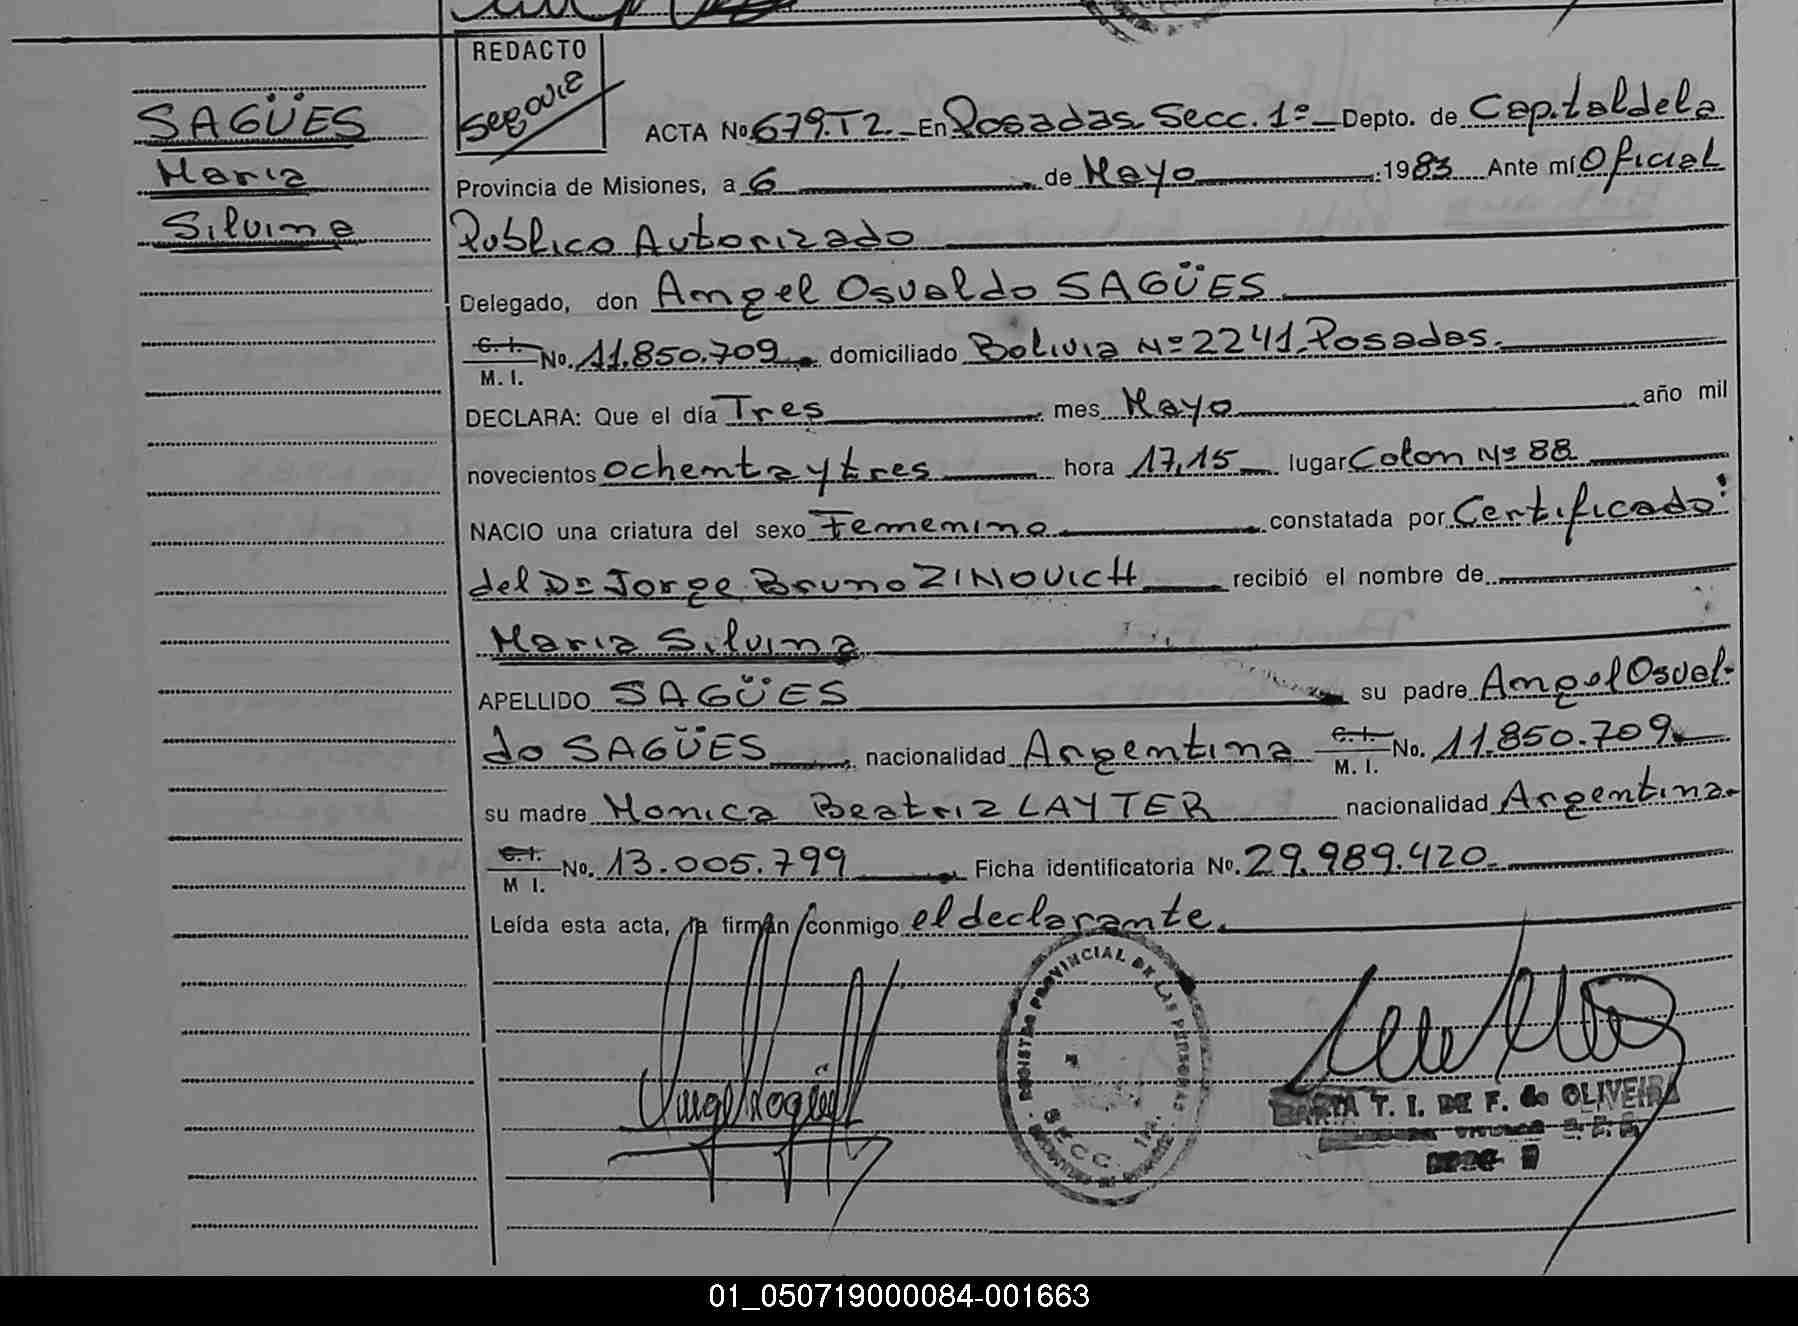 REDACTO
Segovia
SAGÜES
Maria
Silvina
ACTA No 679.T2. En Posadas Secc. 1º Depto. de Capital de la
Provincia de Misiones, a 6 de Mayo 1983 Ante mí Oficial
Publico Autorizado
Delegado, don Angel Osvaldo SAGÜES
C. I.
M. I. No. 11.850.709 domiciliado Bolivia Nº 2241 Posadas.
DECLARA: Que el día Tres mes Mayo año mil
novecientos ochenta y tres hora 17,15 lugar Colon Nº 88
NACIO una criatura del sexo Femenino constatada por Certificado
del Dr Jorge Bruno ZINOVICH recibió el nombre de
Maria Silvina
APELLIDO SAGÜES su padre Angel Osval-
do SAGÜES nacionalidad Argentina C. I. M. I. No. 11.850.709
su madre Monica Beatriz LAYTER nacionalidad Argentina.
C. I.
M I. No. 13.005.799 Ficha identificatoria No. 29.989.420
Leída esta acta, la firman conmigo el declarante.
REGISTRO PROVINCIAL DE LAS PERSONAS
SECC. 1ra.
T. I. DE F. de OLIVEIRA
01_050719000084-001663